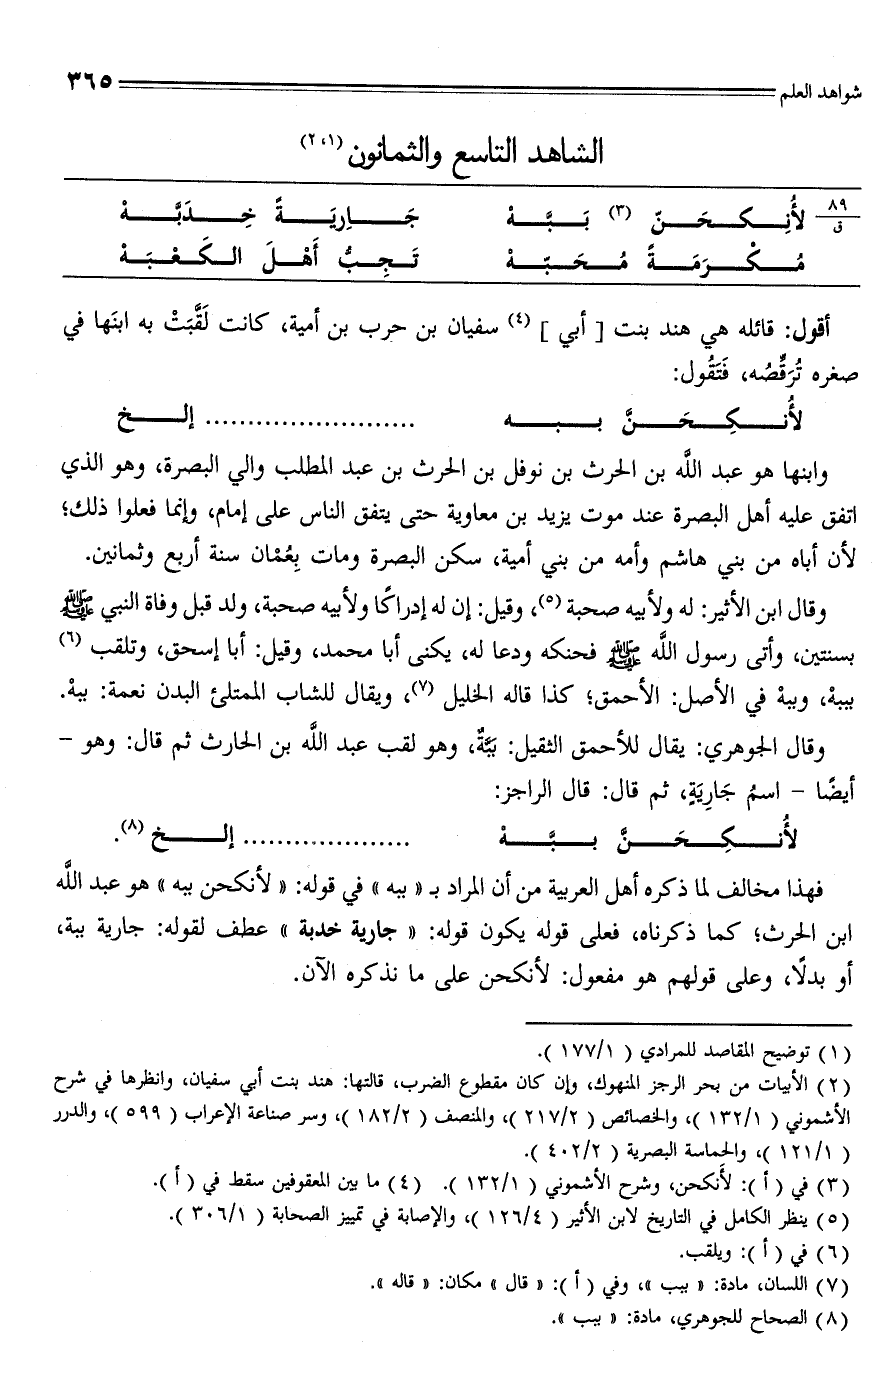 شواهد العلم ٣٦٥
الشاهد التاسع والثمانون (١، ٢)
٨٩/ق لأُنكحَنّ (٣) بَبَّهْ جَارِيَةً خِدَبَّهْ
مُكْرَمَةً مُحَبّهْ تَجِبُّ أَهْلَ الكَعْبَهْ
أقول: قائله هي هند بنت [ أبي ] (٤) سفيان بن حرب بن أمية، كانت لَقَّبَتْ به ابنَها في
صغره تُرَقِّصُه، فَتَقُول:
لأُنكِحَنَّ ببه ......................... إلخ
وابنها هو عبد اللَّه بن الحرث بن نوفل بن الحرث بن عبد المطلب والي البصرة، وهو الذي
اتفق عليه أهل البصرة عند موت يزيد بن معاوية حتى يتفق الناس على إمام، وإنما فعلوا ذلك؛
لأن أباه من بني هاشم وأمه من بني أمية، سكن البصرة ومات بِعُمْان سنة أربع وثمانين.
وقال ابن الأثير: له ولأبيه صحبة (٥)، وقيل: إن له إدراكًا ولأبيه صحبة، ولد قبل وفاة النبي ﷺ
بسنتين، وأتى رسول الله ﷺ فحنكه ودعا له، يكنى أبا محمد، وقيل: أبا إسحق، وتلقب (٦)
ببيهْ، وببهْ في الأصل: الأحمق؛ كذا قاله الخليل (٧)، ويقال للشاب الممتلئ البدن نعمة: ببهْ.
وقال الجوهري: يقال للأحمق الثقيل: بَبَّةٌ، وهو لقب عبد اللَّه بن الحارث ثم قال: وهو –
أيضًا – اسمُ جَارِيَةٍ، ثم قال: قال الراجز:
لأُنكِحَنَّ ببَّهْ .................... إلخ (٨).
فهذا مخالف لما ذكره أهل العربية من أن المراد بـ « ببه » في قوله: « لأنكحن ببه » هو عبد اللَّه
ابن الحرث؛ كما ذكرناه، فعلى قوله يكون قوله: « جارية خدبة » عطف لقوله: جارية ببة،
أو بدلًا، وعلى قولهم هو مفعول: لأنكحن على ما نذكره الآن.
(١) توضيح المقاصد للمرادي ( ١٧٧/١ ).
(٢) الأبيات من بحر الرجز المنهوك، وإن كان مقطوع الضرب، قالتها: هند بنت أبي سفيان، وانظرها في شرح
الأشموني ( ١٣٢/١ )، والخصائص ( ٢١٧/٢ )، والمنصف ( ١٨٢/٢ )، وسر صناعة الإعراب ( ٥٩٩ )، والدرر
( ١٢١/١ )، والحماسة البصرية ( ٤٠٢/٢ ).
(٣) في ( أ ): لأَنكحن، وشرح الأشموني ( ١٣٢/١ ). (٤) ما بين المعقوفين سقط في ( أ ).
(٥) ينظر الكامل في التاريخ لابن الأثير ( ١٢٦/٤ )، والإصابة في تمييز الصحابة ( ٣٠٦/١ ).
(٦) في ( أ ): ويلقب.
(٧) اللسان، مادة: « ببب »، وفي ( أ ): « قال » مكان: « قاله ».
(٨) الصحاح للجوهري، مادة: « ببب ».